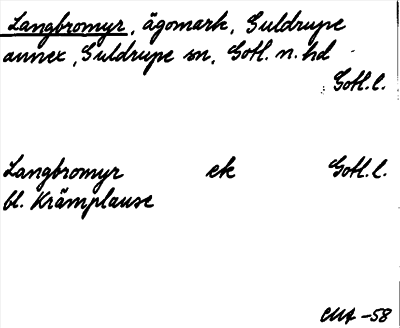 Langbromyr, ägomark, Guldrupe
annex, Guldrupe sn, Gotl. n. hd
Gotl. l.
Langbromyr ek Gotl. l.
bl. Krämplause
CMA -58